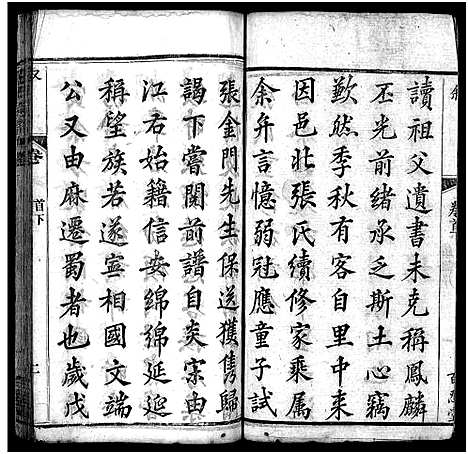 讀祖父遺書未克稱鳳麟
丕光前緒承乏斯土心竊
歉然季秋有客自里中來
因邑北張氏續修家乘属
余弁言憶弱冠應童子試
張金門先生保送獲雋歸
謁下嘗閱前譜自炎宗由
江右始籍信安綿綿延延
稱望族若遂寧相國文端
公又由麻遷蜀者也歲戊
卷
首下